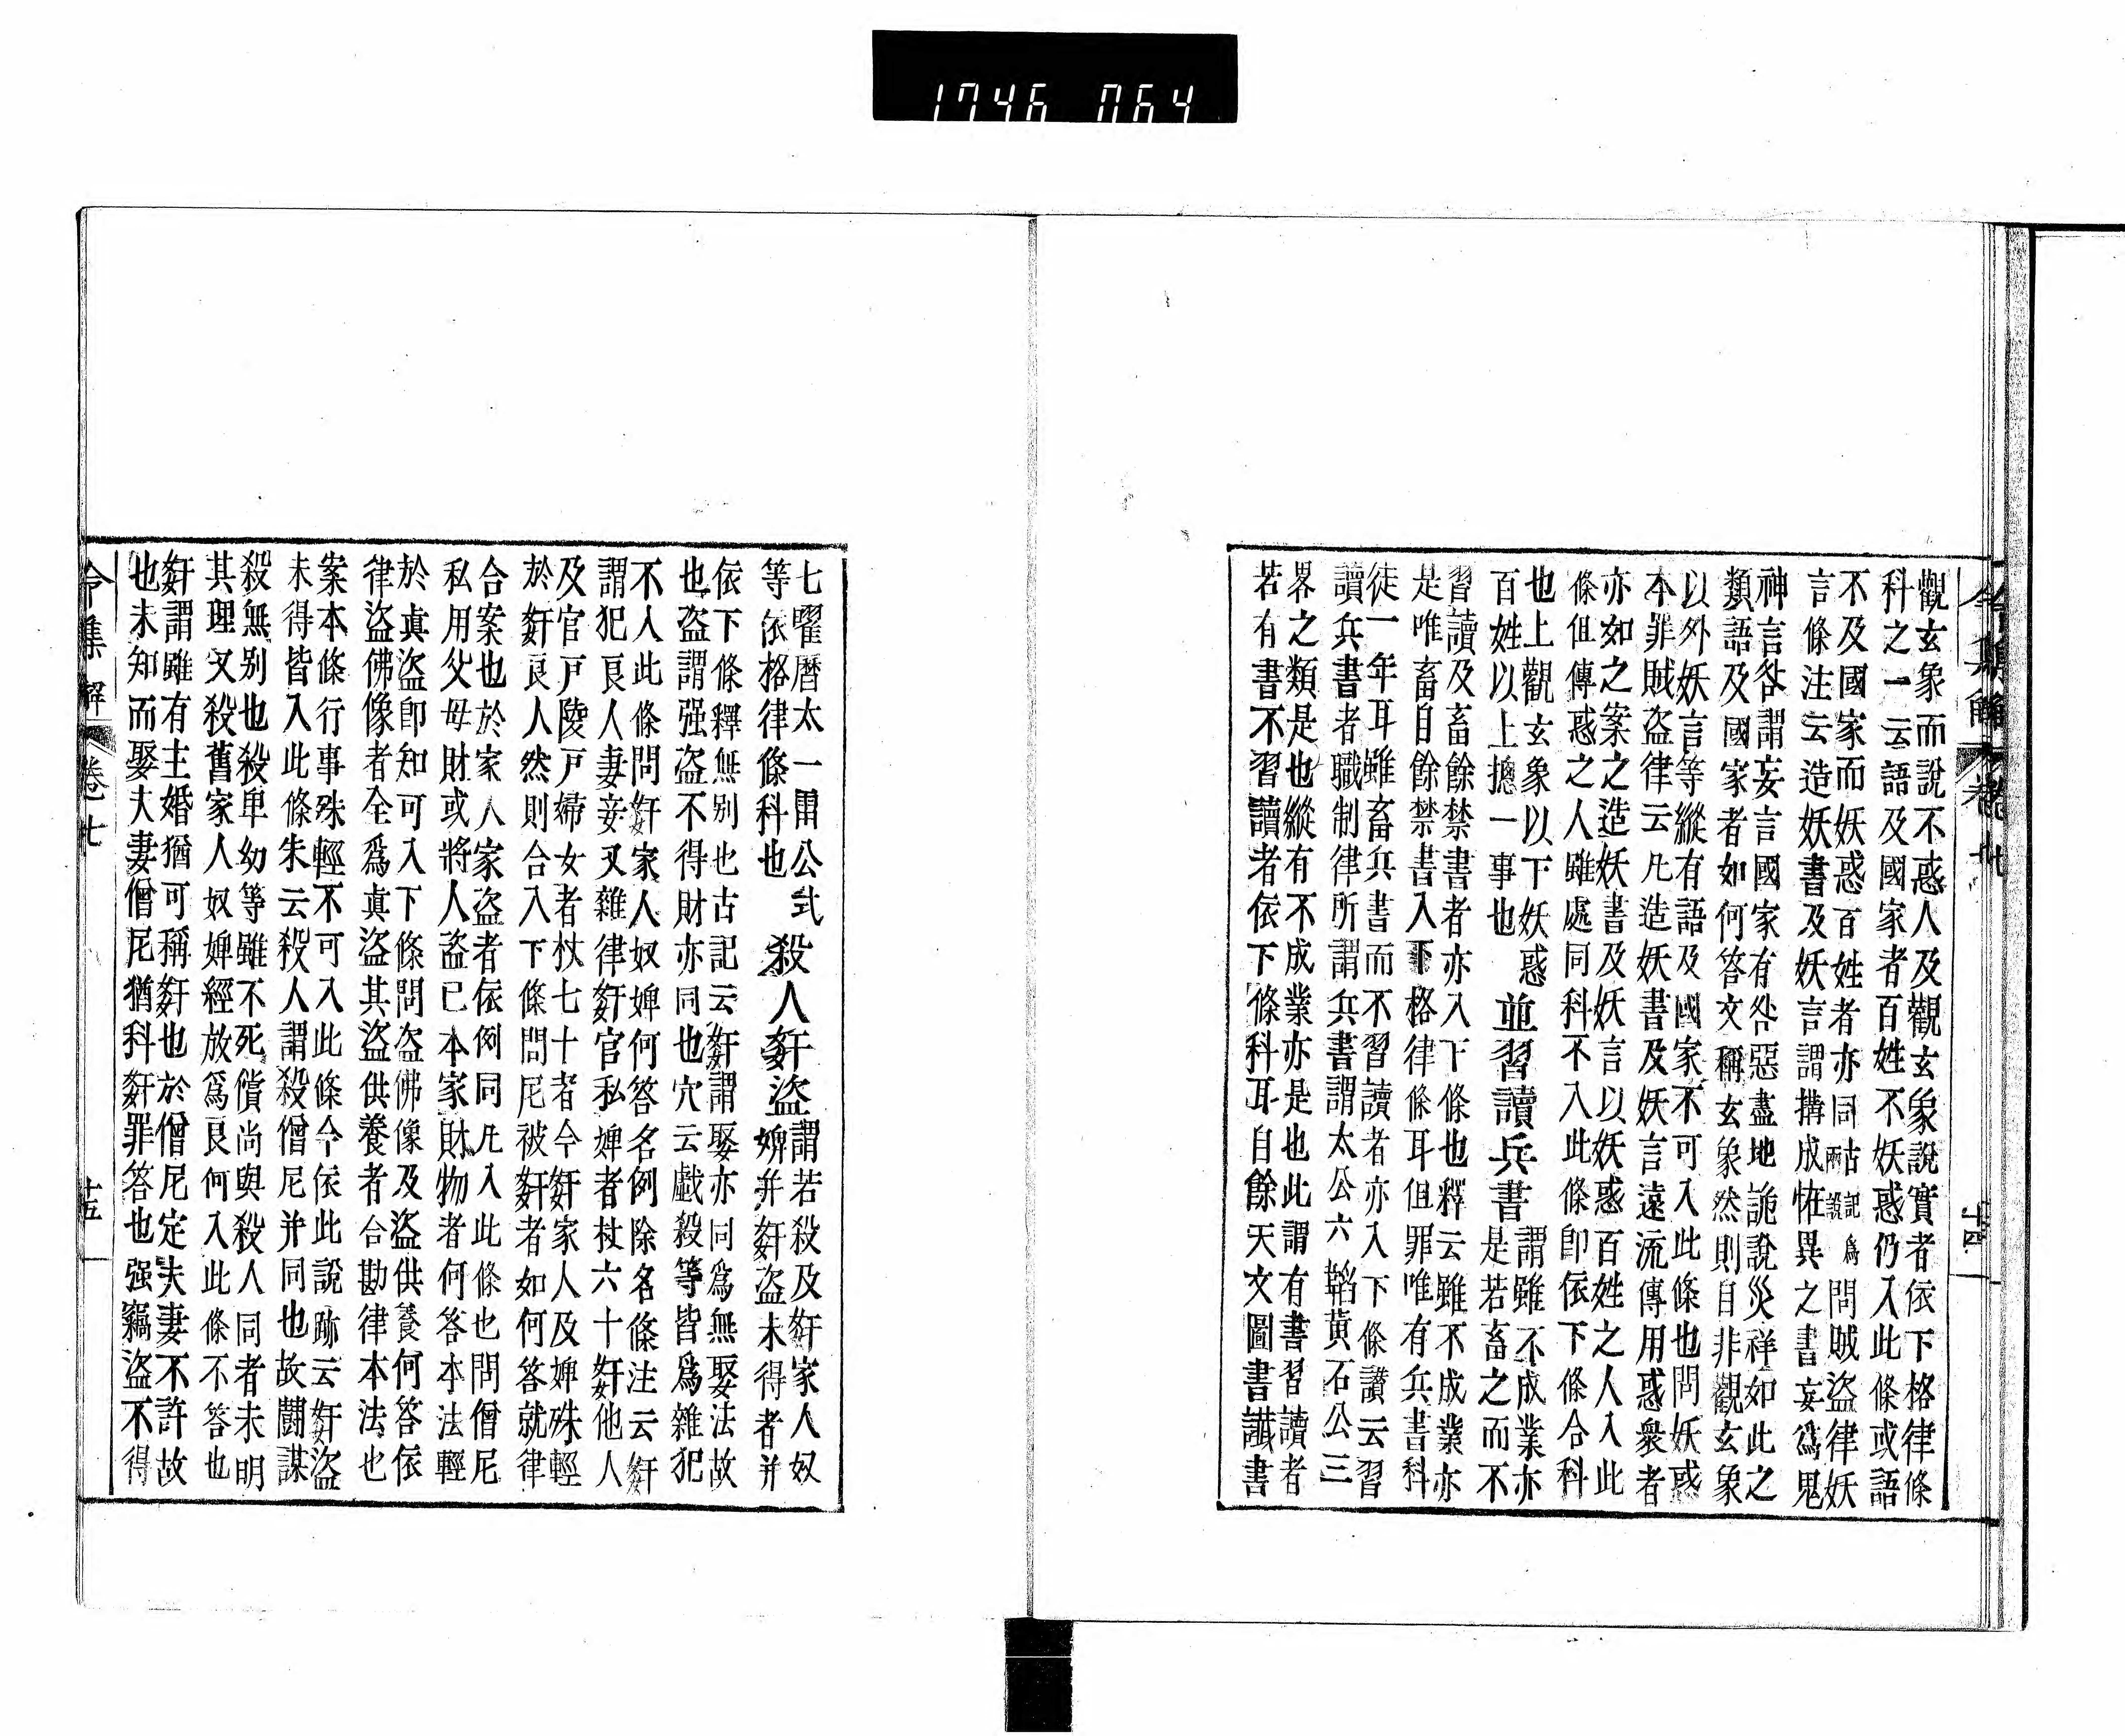 1746 064
令集解 卷七 十四
觀玄象而說不惑人及觀玄象說實者依下格律條
科之一云語及國家者百姓不妖惑仍入此條或語
不及國家而妖惑百姓者亦同古記爲兩說問賊盜律妖
言條注云造妖書及妖言謂搆成恠異之書妄爲鬼
神言咎謂妄言國家有咎惡盡地詭說災祥如此之
類語及國家者如何答文稱玄象然則自非觀玄象
以外妖言等縱有語及國家不可入此條也問妖惑
本罪賊盜律云凡造妖書及妖言遠流傳用惑衆者
亦如之案之造妖書及妖言以妖惑百姓之人入此
條伹傳惑之人雖處同科不入此條卽依下條合科
也上觀玄象以下妖惑
百姓以上摠一事也
並習讀兵書
謂雖不成業亦
是若畜之而不
習讀及畜餘禁書者亦入下條也釋云雖不成業亦
是唯畜自餘禁書入下格律條耳伹罪唯有兵書科
徒一年耳雖畜兵書而不習讀者亦入下條讃云習
讀兵書者職制律所謂兵書謂太公六韜黃石公三
界之類是也縱有不成業亦是也此謂有書習讀者
若有書不習讀者依下條科耳自餘天文圖書讖書
七曜曆太一雷公式
等依格律條科也
殺人姧盜
謂若殺及姧家人奴
婢并姧盜未得者并
依下條釋無別也古記云姧謂娶亦同爲無娶法故
也盜謂强盜不得財亦同也穴云戲殺等皆爲雜犯
不入此條問姧家人奴婢何答名例除名條注云姧
謂犯良人妻妾又雜律姧官私婢者杖六十姧他人
及官戸陵戸婦女者杖七十者今姧家人及婢殊輕
於姧良人然則合入下條問尼被姧者如何答就律
合案也於家人家盜者依例同凡入此條也問僧尼
私用父母財或將人盜己本家財物者何答本法輕
於眞盜卽知可入下條問盜佛像及盜供養何答依
律盜佛像者全爲眞盜其盜供養者合勘律本法也
案本條行事殊輕不可入此條今依此說跡云姧盜
未得皆入此條朱云殺人謂殺僧尼并同也故鬪謀
殺無別也殺卑幼等雖不死償尚與殺人同者未明
其理又殺舊家人奴婢經放爲良何入此條不答也
姧謂雖有主婚猶可稱姧也於僧尼定夫妻不許故
也未知而娶夫妻僧尼猶科姧罪答也强竊盜不得
令集解 卷七 十五